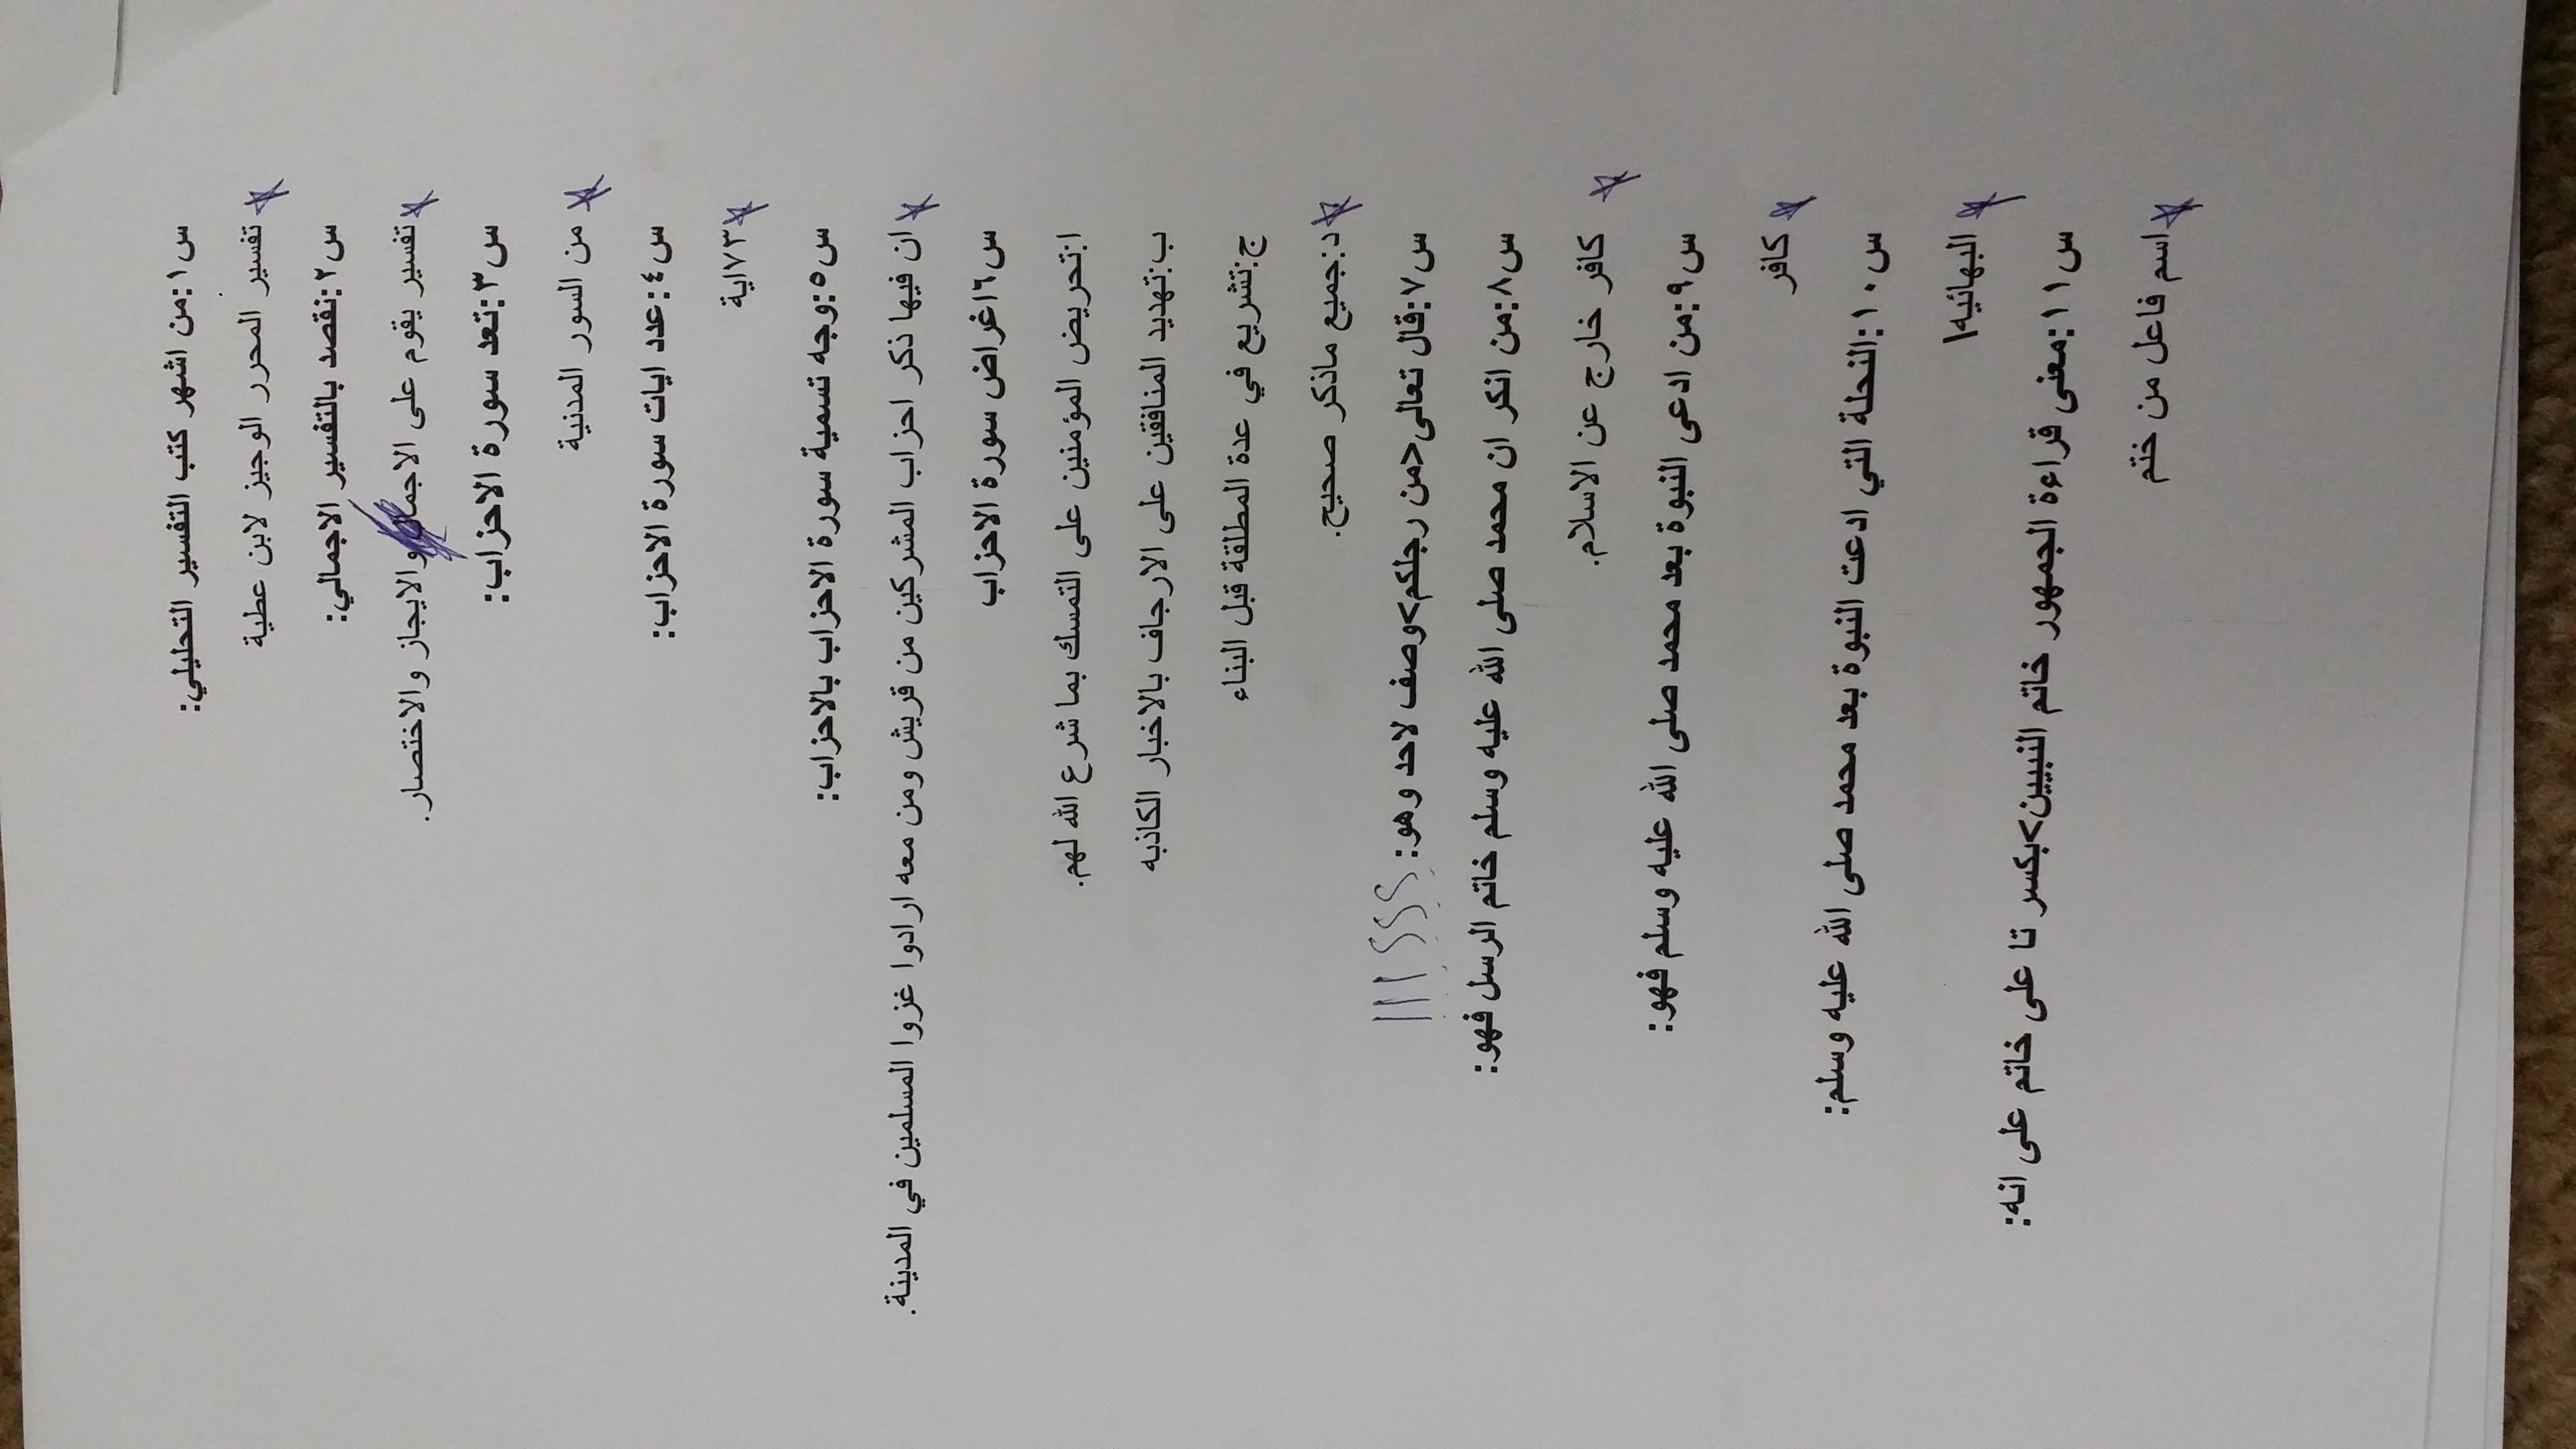 س١:من اشهر كتب التفسير التحليلي:
تفسير المحرر الوجيز لابن عطية
س٢:نقصد بالتفسير الاجمالي:
تفسير يقوم على الاجمال والايجاز والاختصار.
س٣:تعد سورة الاحزاب:
من السور المدنية
س٤:عدد ايات سورة الاحزاب:
٧٣اية
س٥:وجه تسمية سورة الاحزاب بالاحزاب:
ان فيها ذكر احزاب المشركين من قريش ومن معه ارادوا غزوا المسلمين في المدينة.
س٦اغراض سورة الاحزاب
ا:تحريض المؤمنين على التمسك بما شرع الله لهم.
ب:تهديد المنافقين على الارجاف بالاخبار الكاذبه
ج:تشريع في عدة المطلقة قبل البناء
د:جميع ماذكر صحيح.
س٧:قال تعالى<من رجلكم>وصف لاحد وهو: ؟؟؟!!!
س٨:من انكر ان محمد صلى الله عليه وسلم خاتم الرسل فهو:
كافر خارج عن الاسلام.
س٩:من ادعى النبوة بعد محمد صلى الله عليه وسلم فهو:
كافر
س١٠:النحلة التي ادعت النبوة بعد محمد صلى الله عليه وسلم:
البهائيه١
س١١:معنى قراءة الجمهور خاتم النبيين>بكسر تا على خاتم على انه:
اسم فاعل من ختم